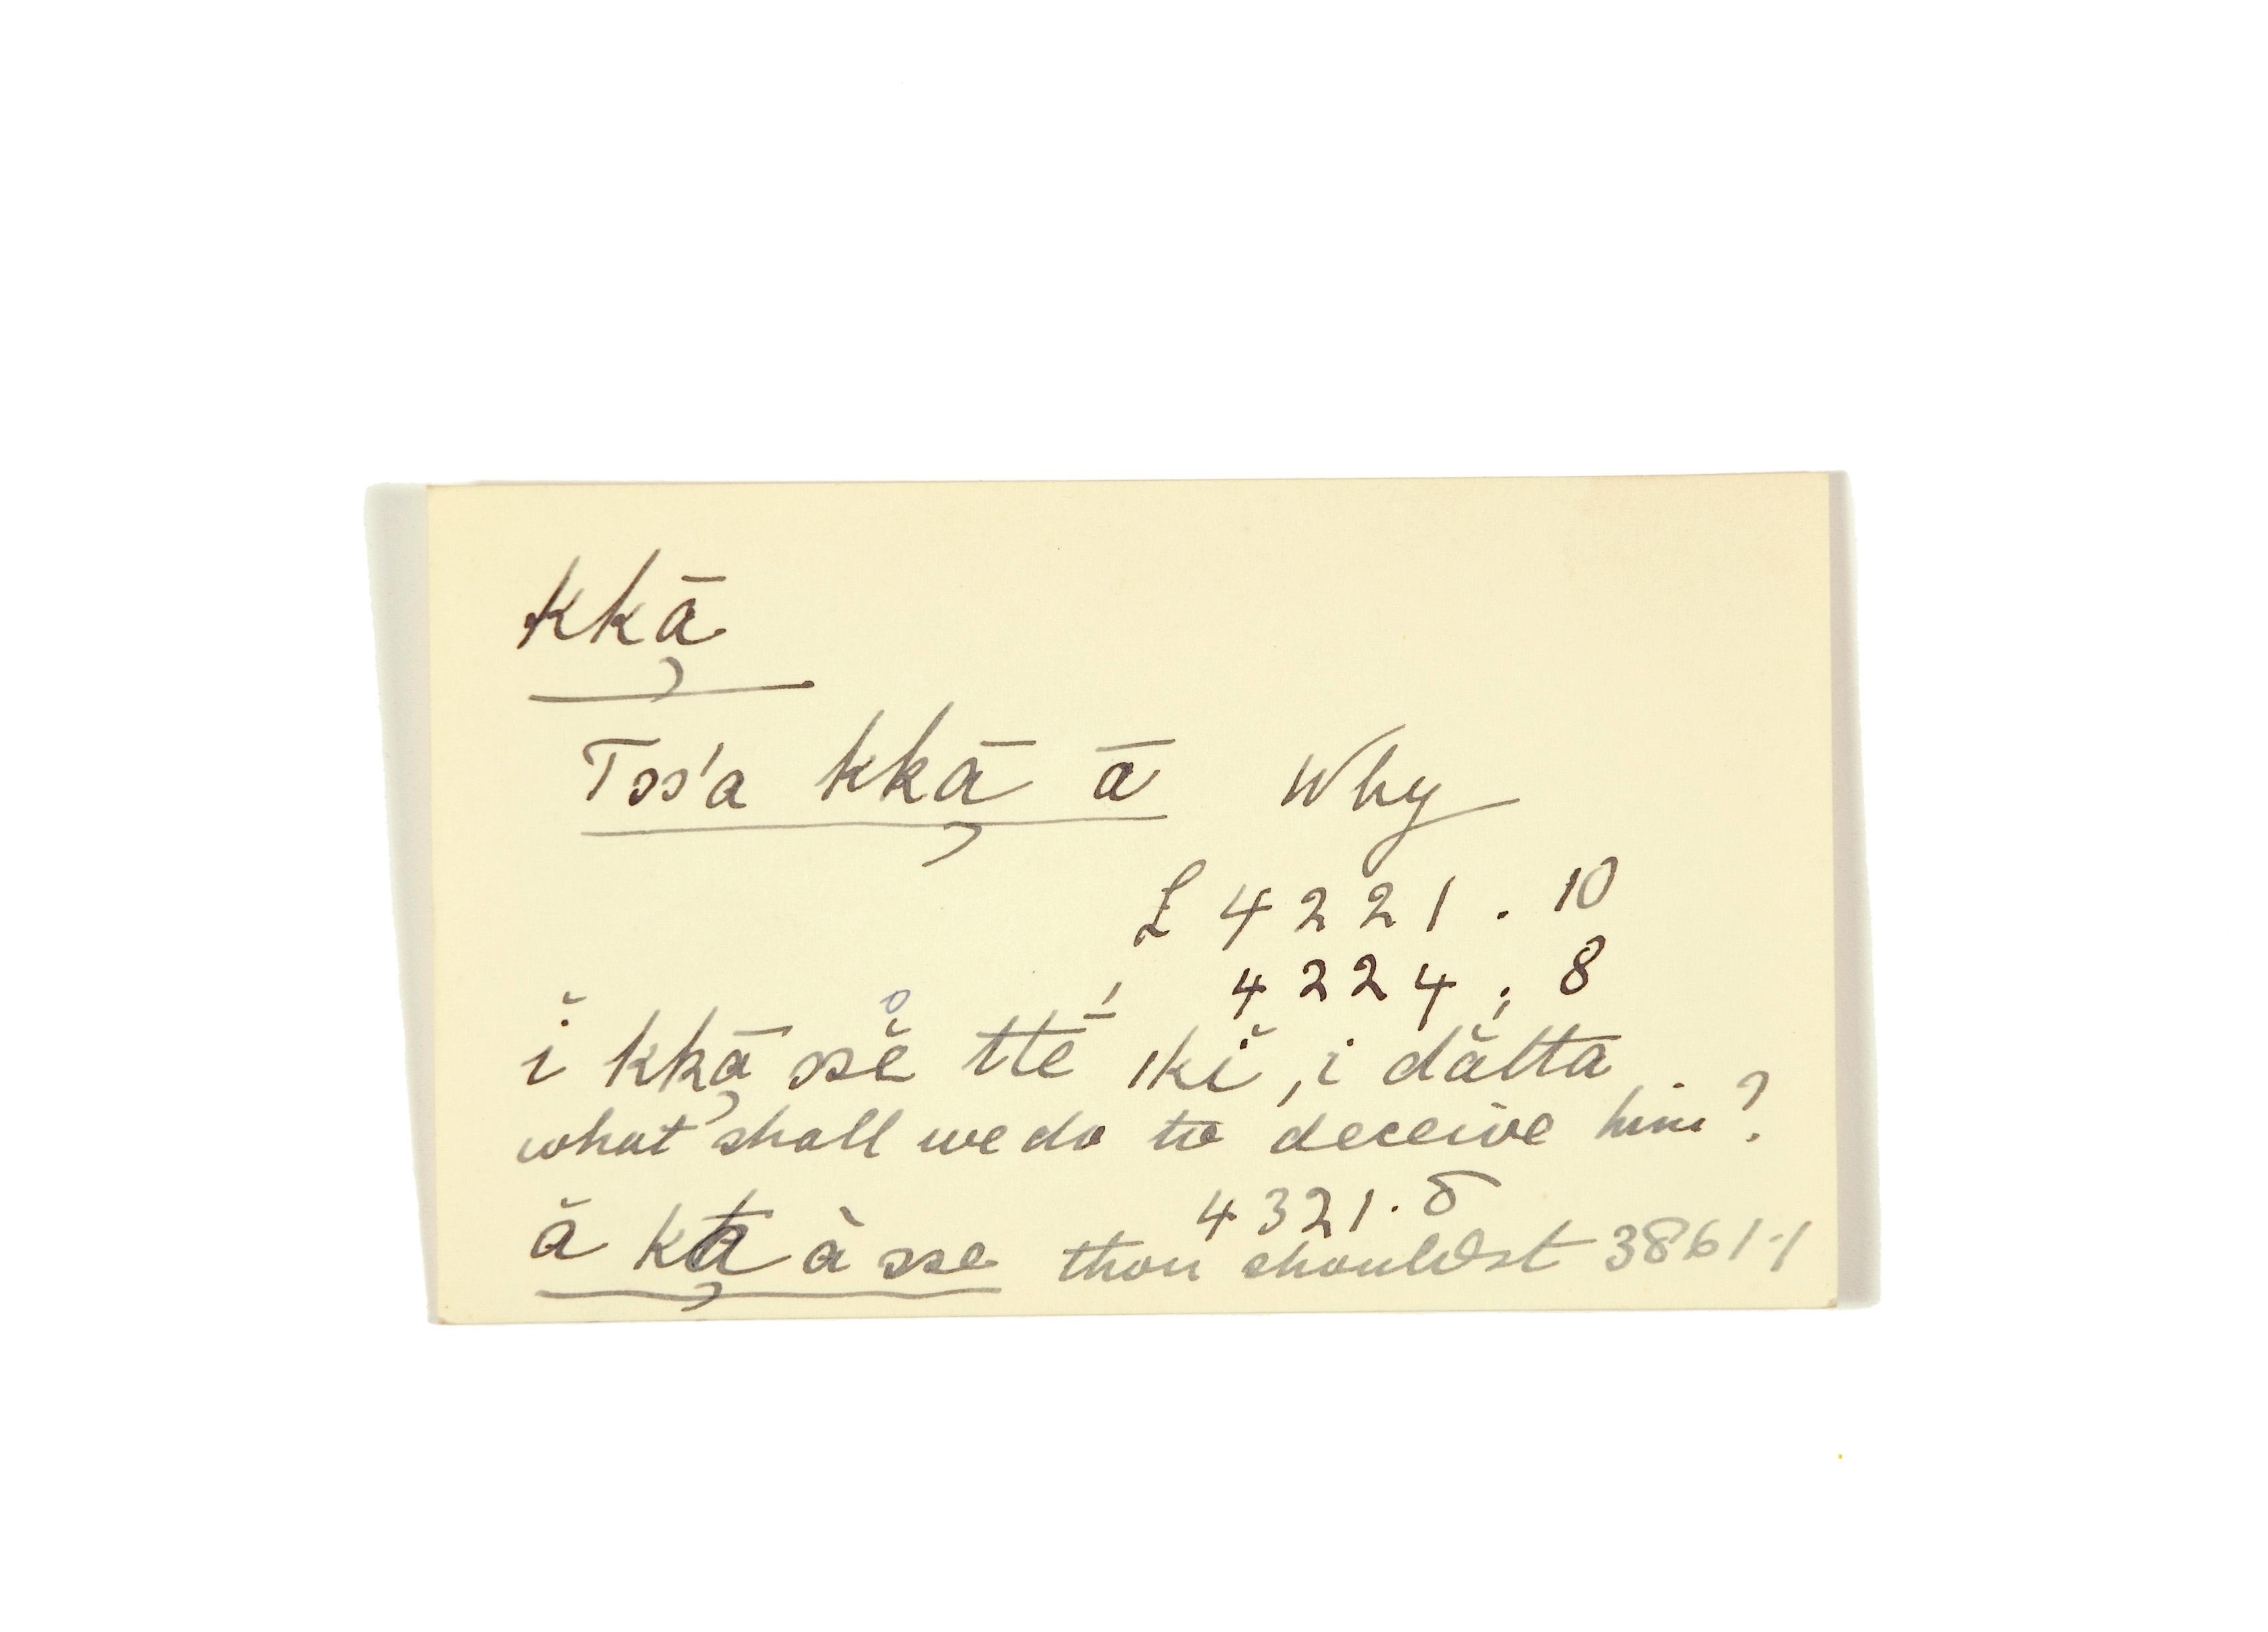 kkā̦
Tss'a kkā̦ ā Why
£ 4221 . 10
4224 ; 8
ĭ kkā̦ ssĕ̊ tté̄ ikĭ, i dălta .
what shall we do to deceive him ?
4321. 8
ă kā̦ à sse thou shouldst 3861.1